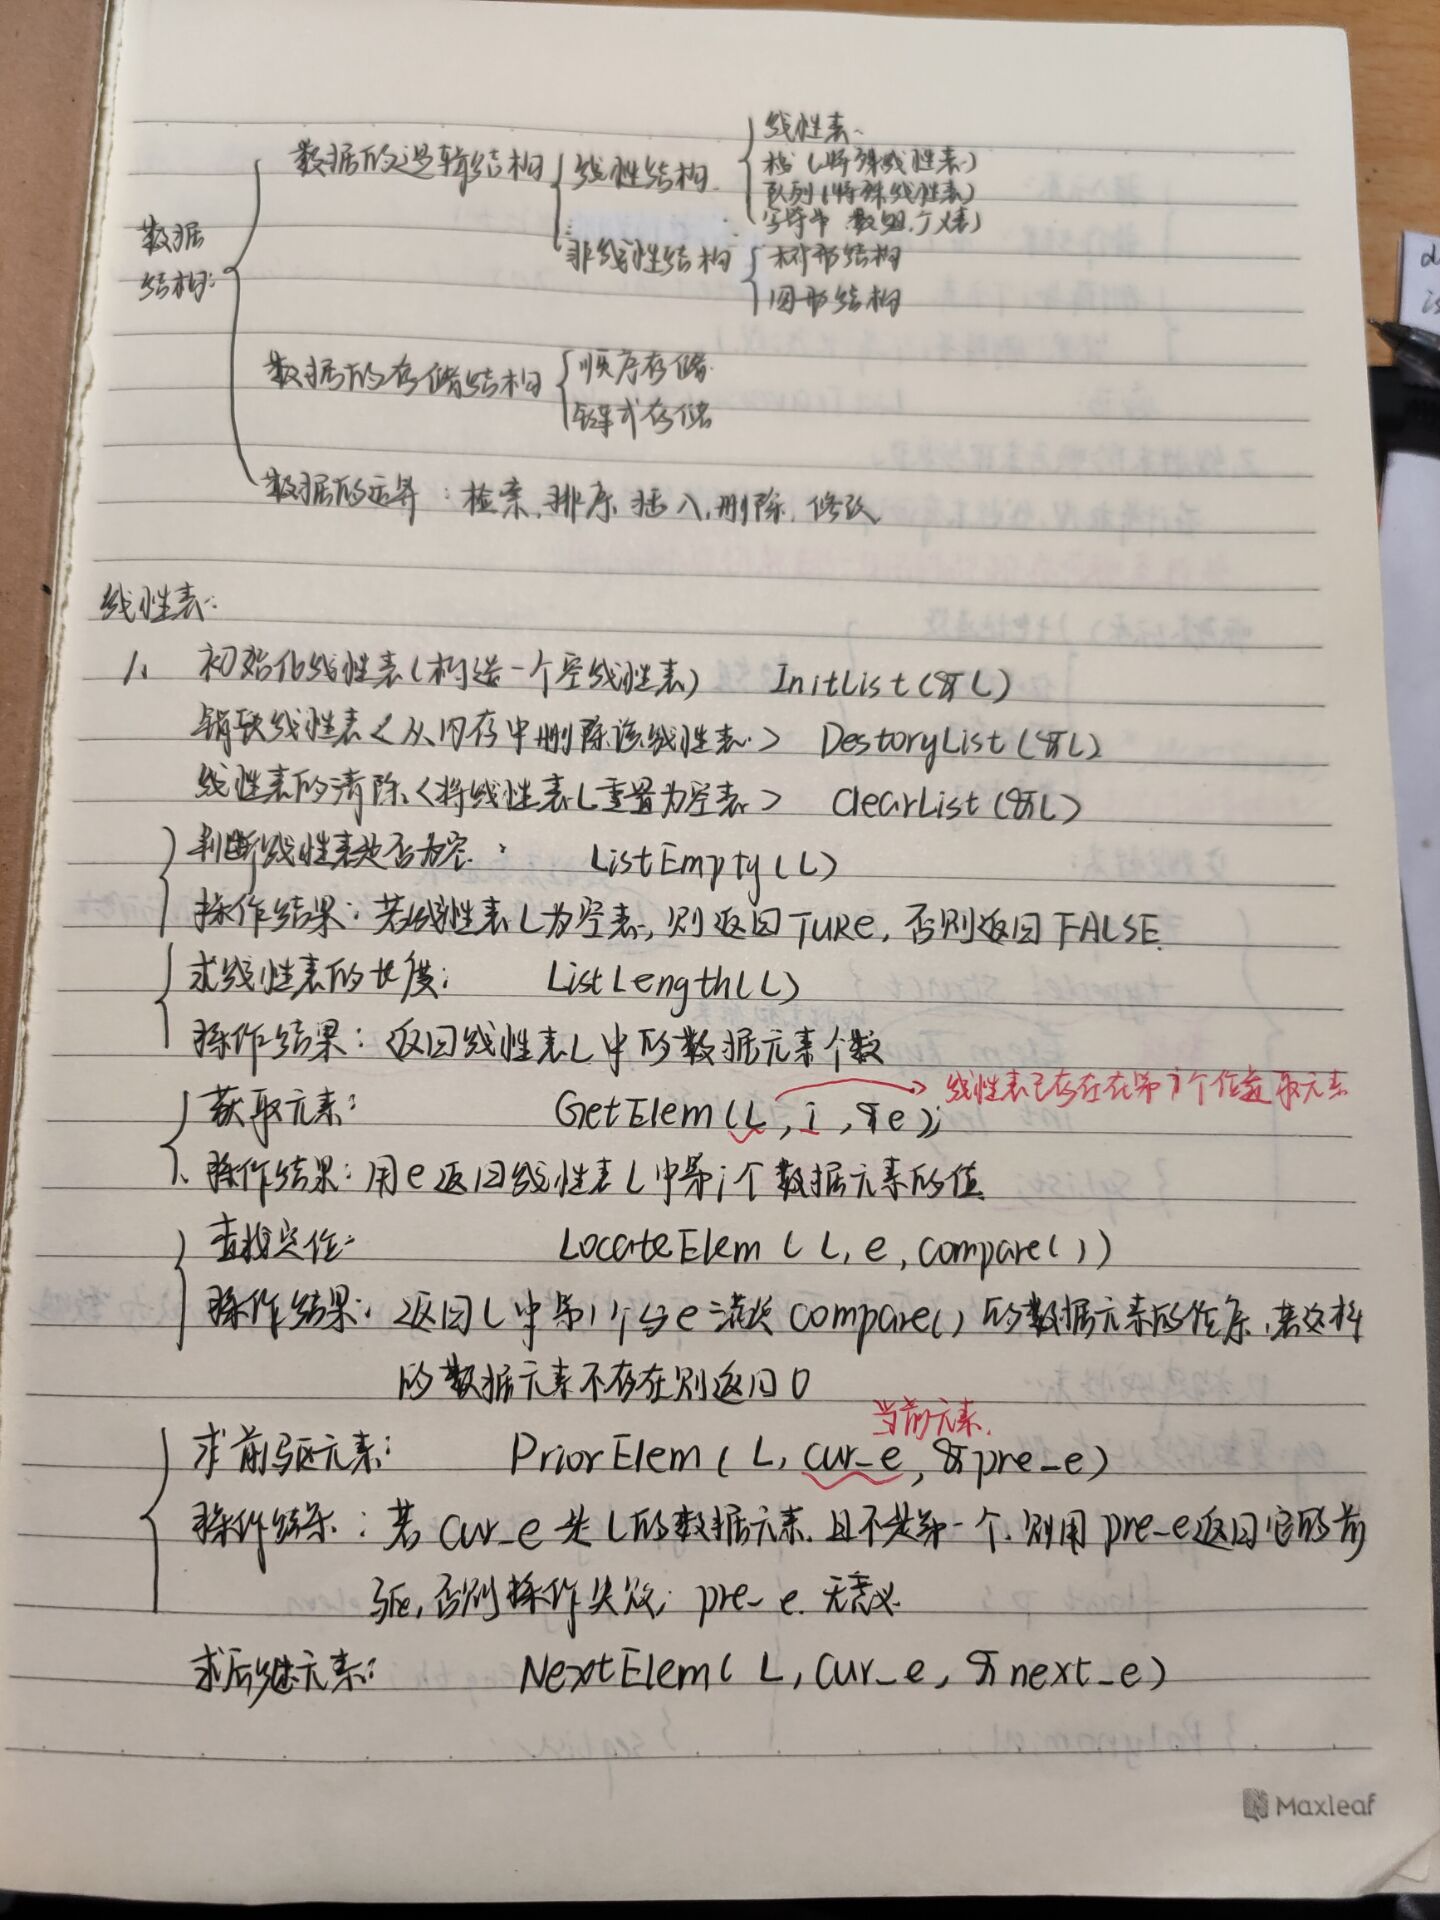 线性表
数据的逻辑结构 线性结构 栈(特殊线性表)
队列(特殊线性表)
字符串 数组 广义表)
数据 非线性结构 树形结构
结构: 图形结构
数据的存储结构 顺序存储
链式存储
数据的运算:检索、排序、插入、删除、修改
线性表:
1、 初始化线性表(构造一个空线性表) InitList(&L)
销毁线性表<从内存中删除该线性表> DestoryList(&L)
线性表的清除<将线性表L重置为空表> ClearList(&L)
判断线性表是否为空: ListEmpty(L)
操作结果:若线性表L为空表,则返回TURE,否则返回FALSE
求线性表的长度: ListLength(L)
操作结果:返回线性表L中的数据元素个数
线性表已存在在第i个位置取元素
获取元素: GetElem(L,i,&e);
操作结果:用e返回线性表L中第i个数据元素的值
查找定位: LocateElem(L,e,compare())
操作结果:返回L中第1个与e满足compare()的数据元素的位序,若这样
的数据元素不存在则返回0
当前元素
求前驱元素: PriorElem(L,cur_e,&pre_e)
操作结果:若cur_e是L的数据元素,且不是第一个,则用pre_e返回它的前
驱,否则操作失败;pre_e无意义
求后继元素: NextElem(L,cur_e,&next_e)
Maxleaf